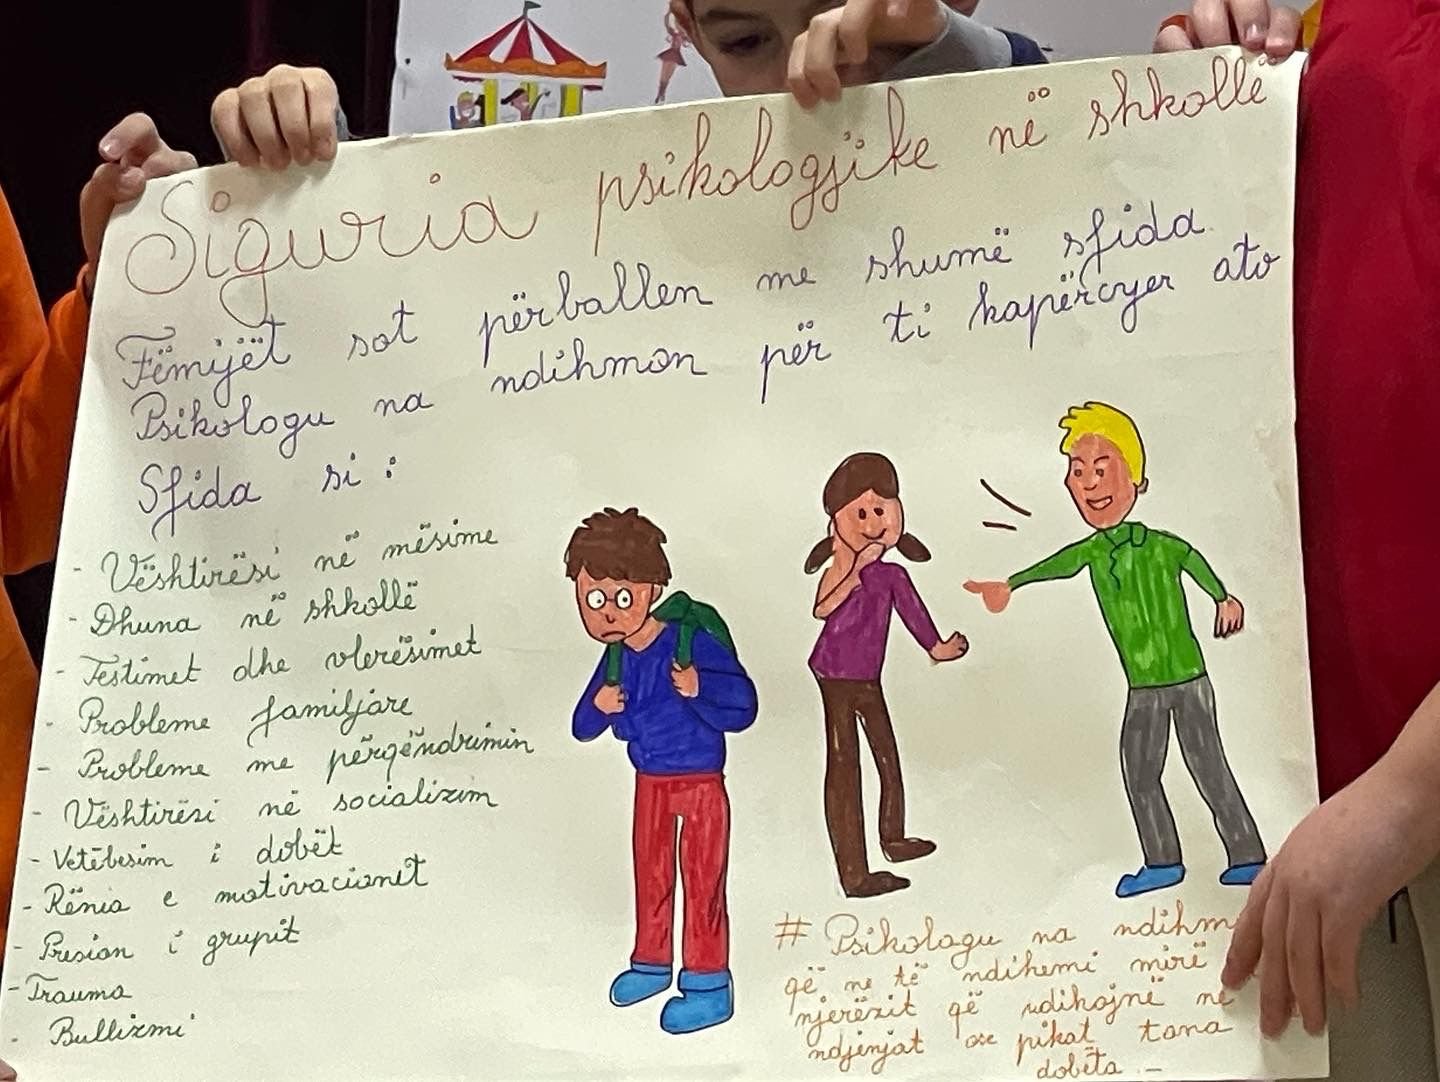 Siguria psikologjike në shkollë
Fëmijët sot përballen me shumë sfida
Psikologu na ndihmon për ti kapërcyer ato
Sfida si:
- Vështirësi në mësime
- Dhuna në shkollë
- Testimet dhe vlerësimet
- Probleme familjare
- Probleme me përqëndrimin
- Vështirësi në socializim
- Vetëbesim i dobët
- Rënia e motivacionit
- Presion i grupit
- Trauma
- Bullizmi
# Psikologu na ndihm
që ne të ndihemi mirë
njerëzit që ndikojnë në
ndjenjat ose pikat tona
dobëta. -